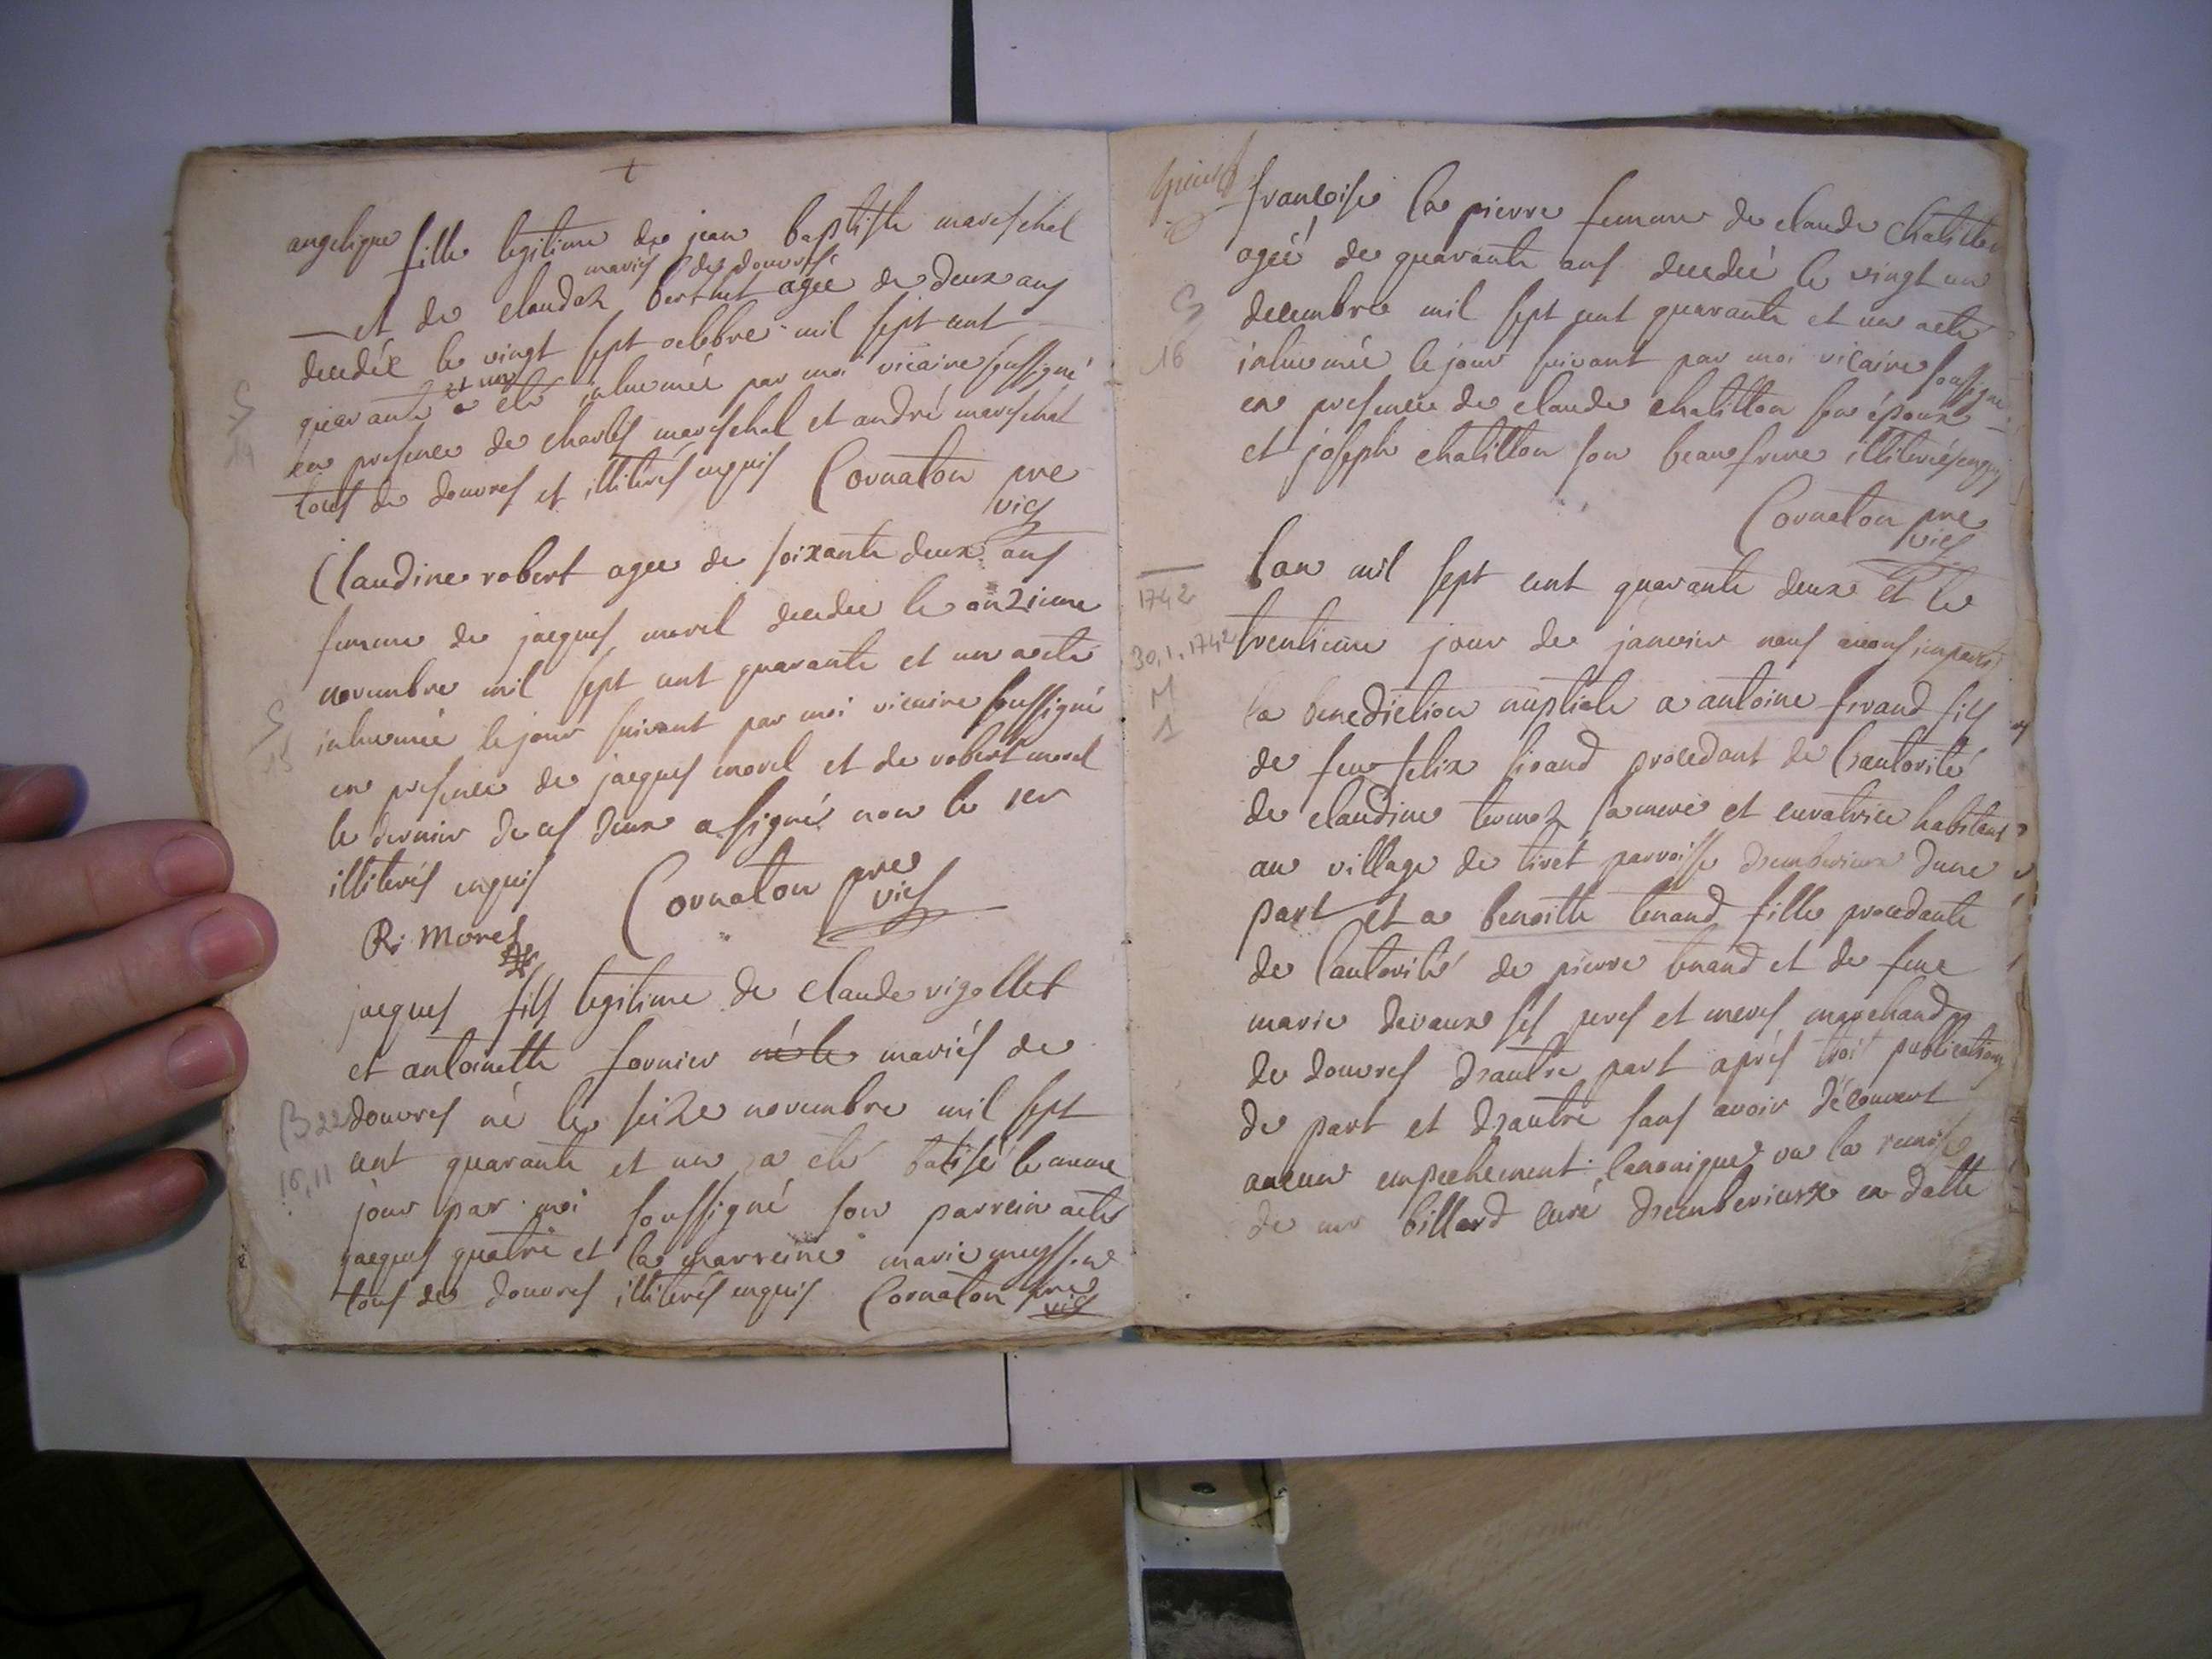 angelique fille legitime de jean baptiste mareschal
maries de douvres
et de claudaz berthet agée de deux ans
decedée le vingt sept octobre mil sept cent
quarante et un a eté inhumée par moi vicaire soussigné
en presence de charles mareschal et andré mareschal
tous de douvres et illiterés enquis Cornaton pre
vics
S
14
Claudine robert agee de soixante deux ans
femme de jacques morel decedee le onzieme
novembre mil sept cent quarante et un a eté
inhumée le jour suivant par moi vicaire soussigné
en presence de jacques morel et de robert morel
le dernier de ces deux a signé non le 1er
illiterés enquis Cornaton pre
vics
R: Morel
S
15
jacques fils legitime de claude vigollet
et antoinette fornier né le mariés de
douvres né le seize novembre mil sept
cent quarante et un a eté batisé le meme
jour par moi soussigné son parrein a eté
jacques quatre et la marreine marie
tous de douvres illiterés enquis Cornaton pre
vics
B 22
16,11
francoise la pierre femme de claude chatillon
ageé de quarante ans decedeé le vingt un
decembre mil sept cent quarante et un a eté
inhumée le jour suivant par moi vicaire soussigné
en presence de claude chatillon son époux
et joseph chatillon son beau frere illiterés enquis
Cornaton pre
vics
S
16
1742
30,1,1742
M
1
lan mil sept cent quarante deux et le
trentieme jour de janvier nous avons imparti
la benediction nuptiale a antoine sirand fils
de feu felix sirand procedant de l'autorité
de claudine termoz sa mere et curatrice habitant
au village de tiret parroisse d'emberieux d'une
part et a benoitte tenand fille procedante
de l'autorité de pierre tenand et de feue
marie devaux ses peres et meres marchand
de douvres d'autre part aprés trois publications
de part et d'autre sans avoir découvert
aucun empechement canonique vu la remise
de mr billard curé d'emberieux en datte